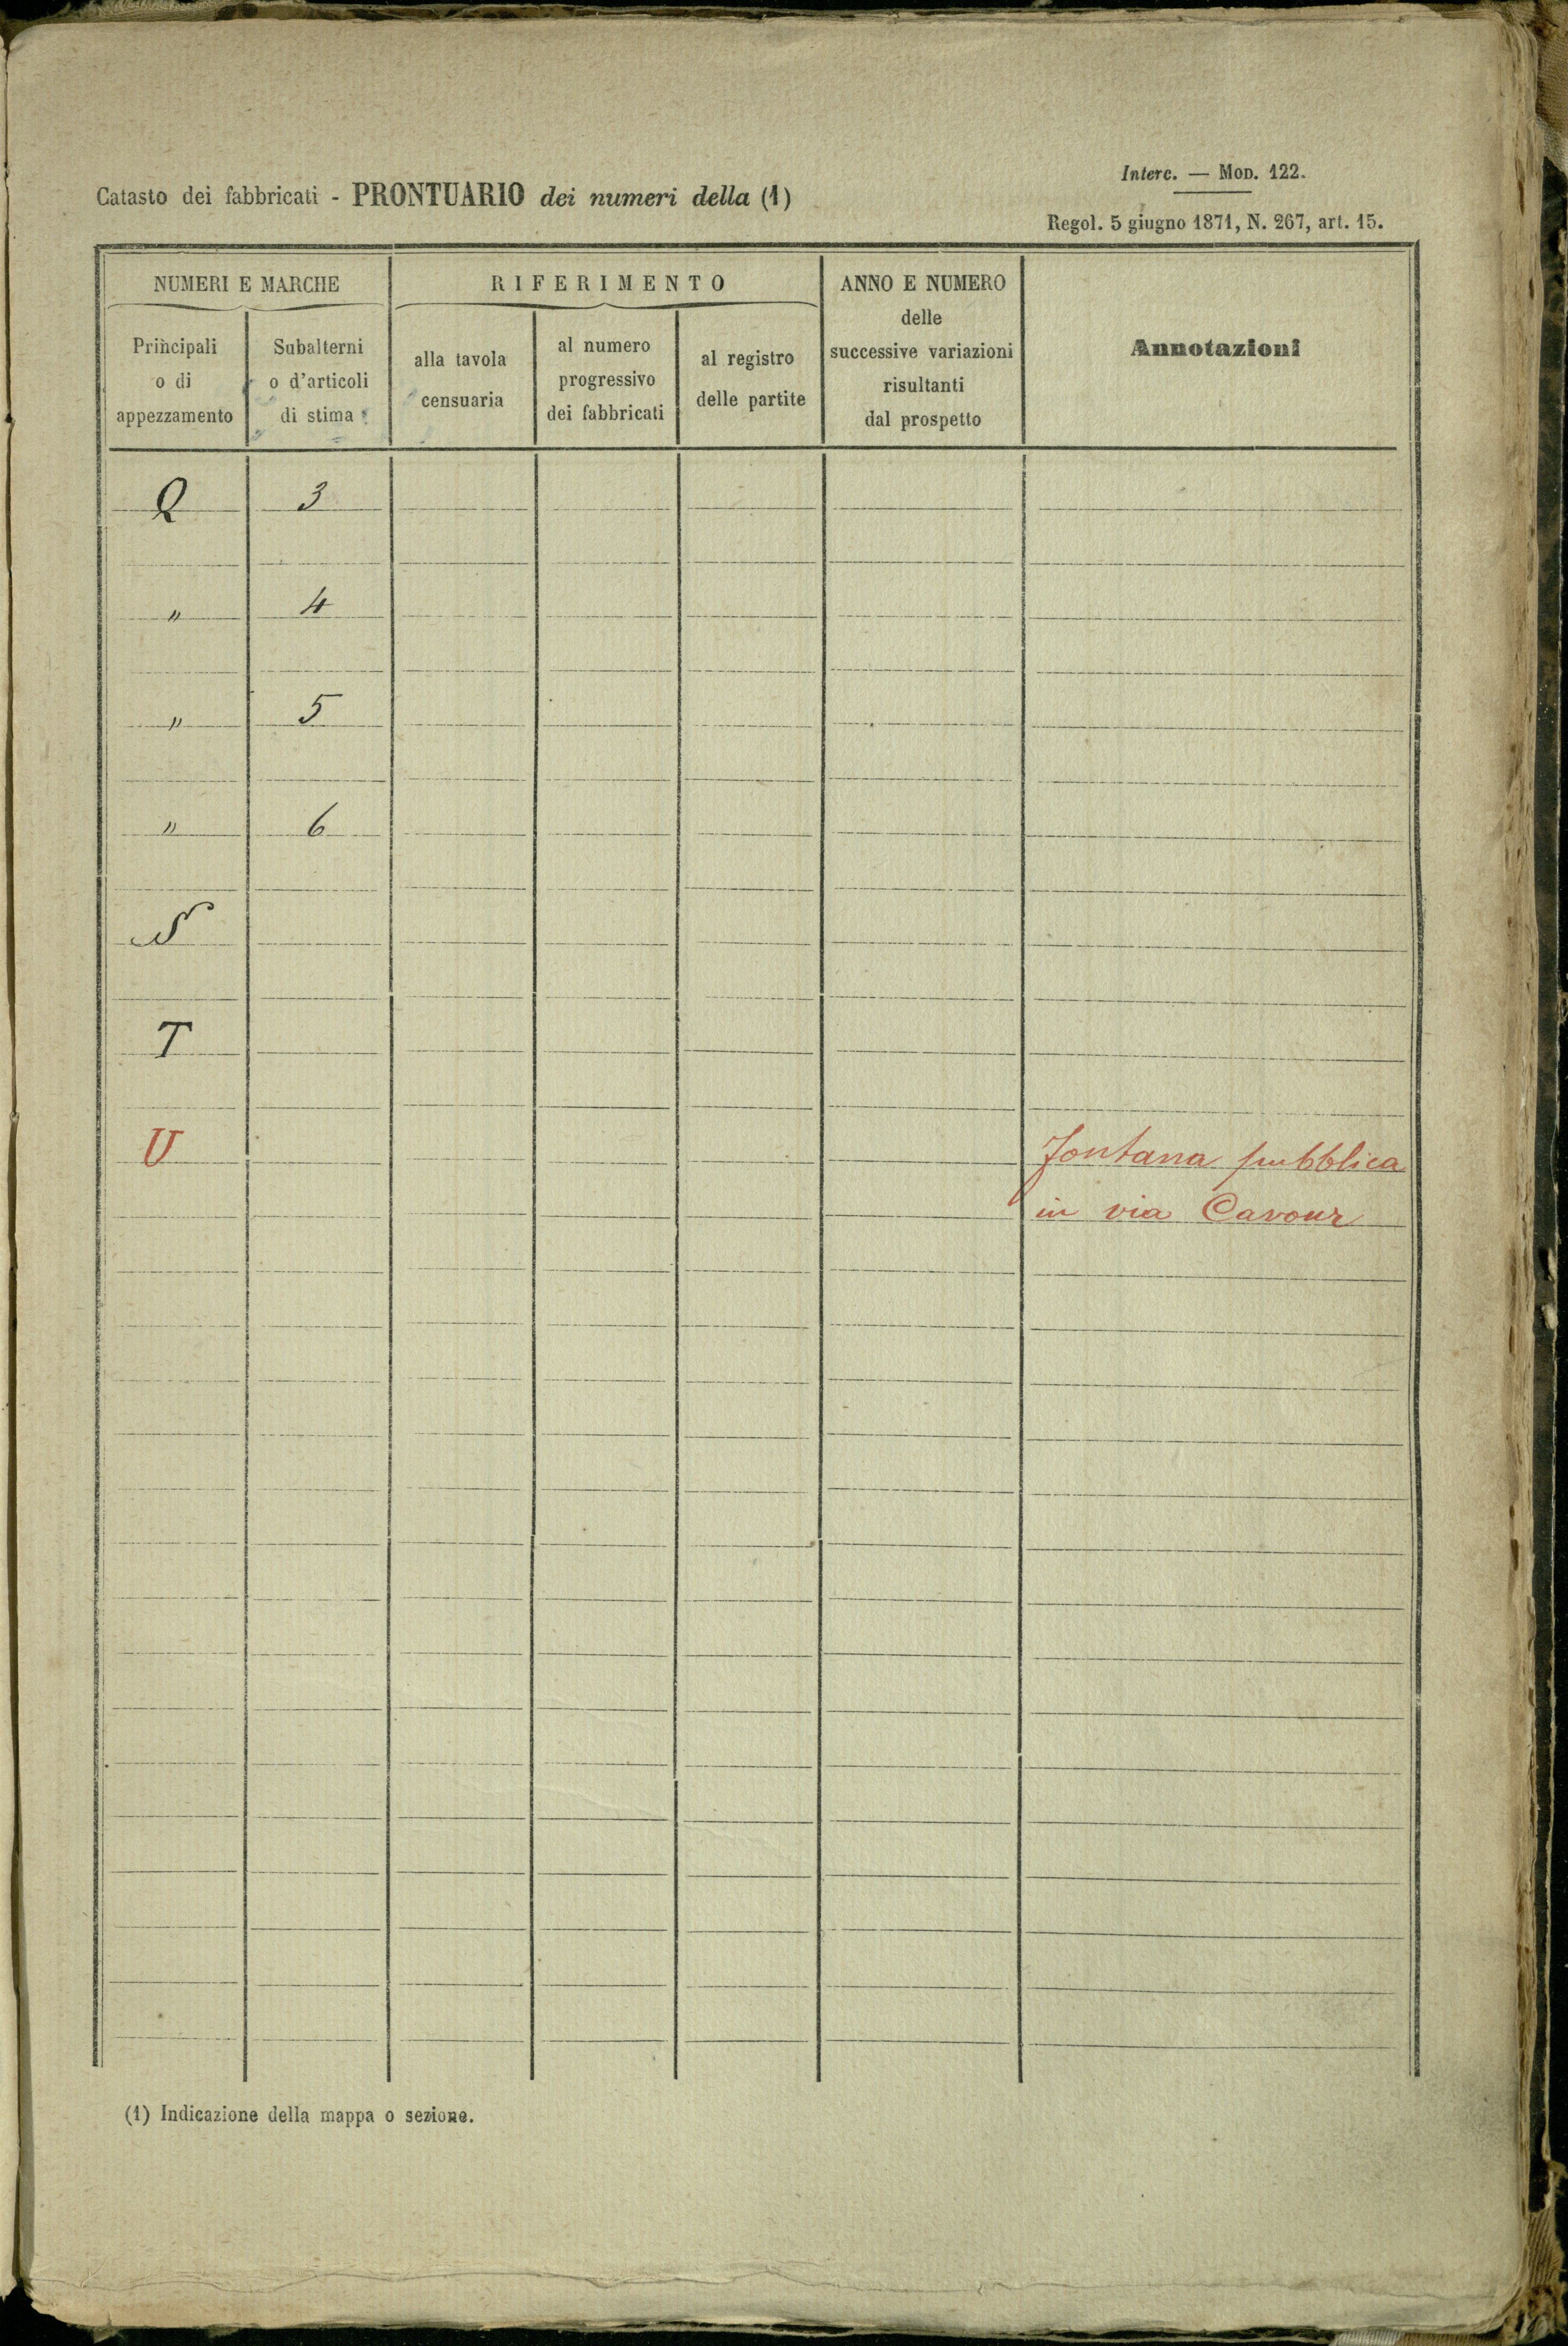 Interc. — Mod. 122.
Catasto dei fabbricati - PRONTUARIO dei numeri della (1)
Regol. 5 giugno 1871, N. 267, art. 15.
NUMERI E MARCHE
Principali
o di
appezzamento
Subalterni
o d'articoli
di stima
RIFERIMENTO
alla tavola
censuaria
al numero
progressivo
dei fabbricati
al registro
delle partite
ANNO E NUMERO
delle
successive variazioni
risultanti
dal prospetto
Annotazioni
Q 3
" 4
" 5
" 6
S
T
U Fontana pubblica
in via Cavour
(1) Indicazione della mappa o sezione.